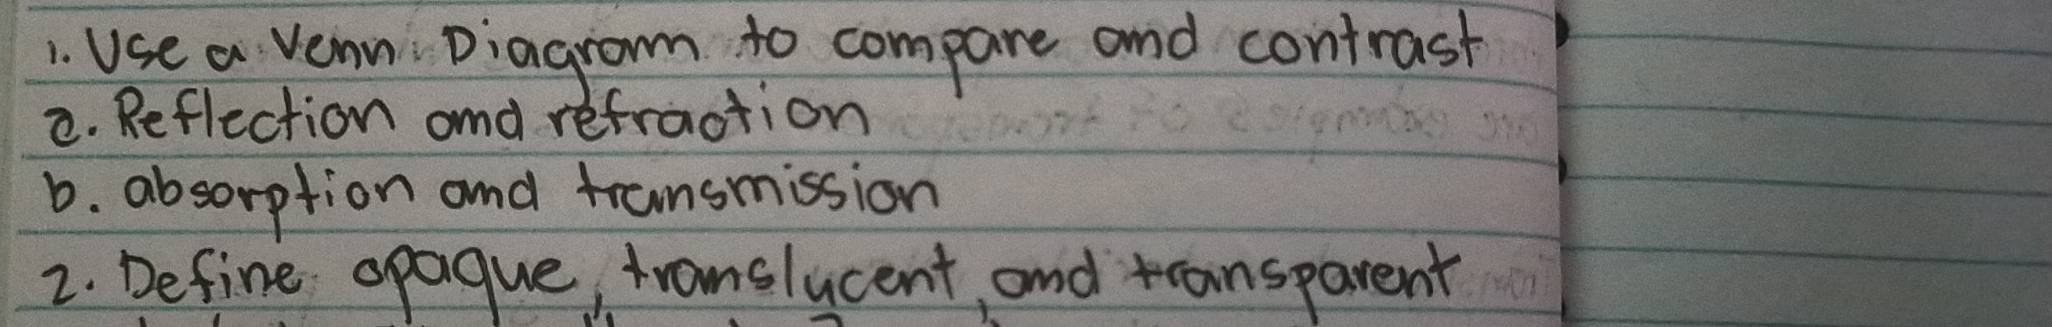 1. Use a Venn Diagram to compare and contrast
a. Reflection and refraction
b. absorption and transmission
2. Define opaque, translucent, and transparent